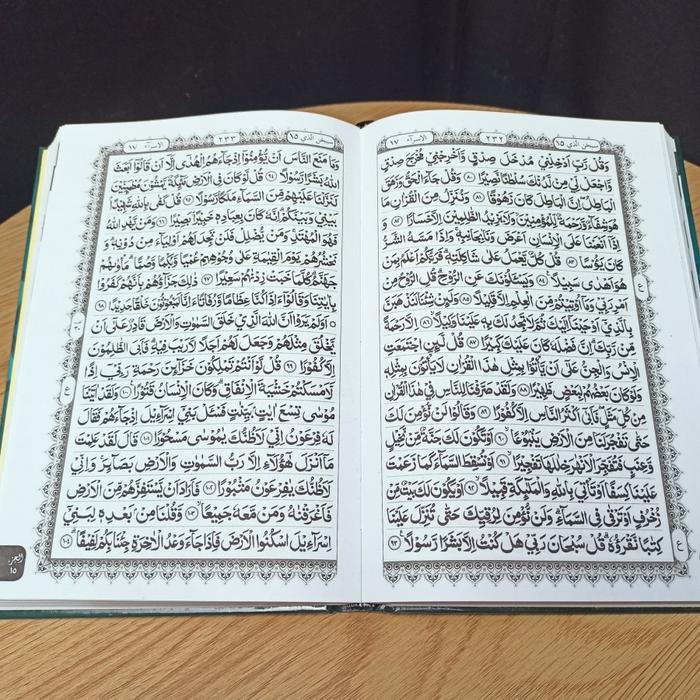 سبحن الذي ١٥ ٢٣٢ الاسراء ١٧
وَقُلْ رَّبِّ اَدْخِلْنِيْ مُدْخَلَ صِدْقٍ وَّاَخْرِجْنِيْ مُخْرَجَ صِدْقٍ
وَّاجْعَلْ لِّيْ مِنْ لَّدُنْكَ سُلْطٰنًا نَّصِيْرًا ٨٠ وَقُلْ جَاۤءَ الْحَقُّ وَزَهَقَ
الْبَاطِلُ اِنَّ الْبَاطِلَ كَانَ زَهُوْقًا ٨١ وَنُنَزِّلُ مِنَ الْقُرْاٰنِ مَا
هُوَ شِفَاۤءٌ وَّرَحْمَةٌ لِّلْمُؤْمِنِيْنَ وَلَا يَزِيْدُ الظّٰلِمِيْنَ اِلَّا خَسَارًا ٨٢ وَ
اِذَآ اَنْعَمْنَا عَلَى الْاِنْسَانِ اَعْرَضَ وَنَاٰ بِجَانِبِهٖ وَاِذَا مَسَّهُ الشَّرُّ
كَانَ يَـُٔوْسًا ٨٣ قُلْ كُلٌّ يَّعْمَلُ عَلٰى شَاكِلَتِهٖ فَرَبُّكُمْ اَعْلَمُ بِمَنْ
هُوَ اَهْدٰى سَبِيْلًا ٨٤ وَيَسْـَٔلُوْنَكَ عَنِ الرُّوْحِ قُلِ الرُّوْحُ مِنْ
اَمْرِ رَبِّيْ وَمَآ اُوْتِيْتُمْ مِّنَ الْعِلْمِ اِلَّا قَلِيْلًا ٨٥ وَلَىِٕنْ شِئْنَا لَنَذْهَبَنَّ
بِالَّذِيْٓ اَوْحَيْنَآ اِلَيْكَ ثُمَّ لَا تَجِدُ لَكَ بِهٖ عَلَيْنَا وَكِيْلًا ٨٦ اِلَّا رَحْمَةً
مِّنْ رَّبِّكَ اِنَّ فَضْلَهٗ كَانَ عَلَيْكَ كَبِيْرًا ٨٧ قُلْ لَّىِٕنِ اجْتَمَعَتِ
الْاِنْسُ وَالْجِنُّ عَلٰٓى اَنْ يَّأْتُوْا بِمِثْلِ هٰذَا الْقُرْاٰنِ لَا يَأْتُوْنَ بِمِثْلِهٖ
وَلَوْ كَانَ بَعْضُهُمْ لِبَعْضٍ ظَهِيْرًا ٨٨ وَلَقَدْ صَرَّفْنَا لِلنَّاسِ فِيْ هٰذَا الْقُرْاٰنِ
مِنْ كُلِّ مَثَلٍ فَاَبٰٓى اَكْثَرُ النَّاسِ اِلَّا كُفُوْرًا ٨٩ وَقَالُوْا لَنْ نُّؤْمِنَ لَكَ
حَتّٰى تَفْجُرَ لَنَا مِنَ الْاَرْضِ يَنْۢبُوْعًا ٩٠ اَوْ تَكُوْنَ لَكَ جَنَّةٌ مِّنْ نَّخِيْلٍ
وَّعِنَبٍ فَتُفَجِّرَ الْاَنْهٰرَ خِلٰلَهَا تَفْجِيْرًا ٩١ اَوْ تُسْقِطَ السَّمَاۤءَ كَمَا زَعَمْتَ
عَلَيْنَا كِسَفًا اَوْ تَأْتِيَ بِاللّٰهِ وَالْمَلٰۤىِٕكَةِ قَبِيْلًا ٩٢ اَوْ يَكُوْنَ لَكَ بَيْتٌ مِّنْ
زُخْرُفٍ اَوْ تَرْقٰى فِى السَّمَاۤءِ وَلَنْ نُّؤْمِنَ لِرُقِيِّكَ حَتّٰى تُنَزِّلَ عَلَيْنَا
كِتٰبًا نَّقْرَؤُهٗ قُلْ سُبْحَانَ رَبِّيْ هَلْ كُنْتُ اِلَّا بَشَرًا رَّسُوْلًا ٩٣
ع
ع
سبحن الذي ١٥ ٢٣٣ الاسراء ١٧
وَمَا مَنَعَ النَّاسَ اَنْ يُّؤْمِنُوْٓا اِذْ جَاۤءَهُمُ الْهُدٰٓى اِلَّآ اَنْ قَالُوْٓا اَبَعَثَ
اللّٰهُ بَشَرًا رَّسُوْلًا ٩٤ قُلْ لَّوْ كَانَ فِى الْاَرْضِ مَلٰۤىِٕكَةٌ يَّمْشُوْنَ مُطْمَىِٕنِّيْنَ
لَنَزَّلْنَا عَلَيْهِمْ مِّنَ السَّمَاۤءِ مَلَكًا رَّسُوْلًا ٩٥ قُلْ كَفٰى بِاللّٰهِ شَهِيْدًاۢ
بَيْنِيْ وَبَيْنَكُمْ اِنَّهٗ كَانَ بِعِبَادِهٖ خَبِيْرًاۢ بَصِيْرًا ٩٦ وَمَنْ يَّهْدِ اللّٰهُ
فَهُوَ الْمُهْتَدِ وَمَنْ يُّضْلِلْ فَلَنْ تَجِدَ لَهُمْ اَوْلِيَاۤءَ مِنْ دُوْنِهٖ وَ
نَحْشُرُهُمْ يَوْمَ الْقِيٰمَةِ عَلٰى وُجُوْهِهِمْ عُمْيًا وَّبُكْمًا وَّصُمًّا مَأْوٰىهُمْ
جَهَنَّمُ كُلَّمَا خَبَتْ زِدْنٰهُمْ سَعِيْرًا ٩٧ ذٰلِكَ جَزَاۤؤُهُمْ بِاَنَّهُمْ كَفَرُوْا
بِاٰيٰتِنَا وَقَالُوْٓا ءَاِذَا كُنَّا عِظَامًا وَّرُفَاتًا ءَاِنَّا لَمَبْعُوْثُوْنَ خَلْقًا جَدِيْدًا ٩٨
اَوَلَمْ يَرَوْا اَنَّ اللّٰهَ الَّذِيْ خَلَقَ السَّمٰوٰتِ وَالْاَرْضَ قَادِرٌ عَلٰٓى اَنْ
يَّخْلُقَ مِثْلَهُمْ وَجَعَلَ لَهُمْ اَجَلًا لَّا رَيْبَ فِيْهِ فَاَبَى الظّٰلِمُوْنَ
اِلَّا كُفُوْرًا ٩٩ قُلْ لَّوْ اَنْتُمْ تَمْلِكُوْنَ خَزَاۤىِٕنَ رَحْمَةِ رَبِّيْٓ اِذًا
لَّاَمْسَكْتُمْ خَشْيَةَ الْاِنْفَاقِ وَكَانَ الْاِنْسَانُ قَتُوْرًا ١٠٠ وَلَقَدْ اٰتَيْنَا
مُوْسٰى تِسْعَ اٰيٰتٍۢ بَيِّنٰتٍ فَسْـَٔلْ بَنِيْٓ اِسْرَاۤءِيْلَ اِذْ جَاۤءَهُمْ فَقَالَ
لَهٗ فِرْعَوْنُ اِنِّيْ لَاَظُنُّكَ يٰمُوْسٰى مَسْحُوْرًا ١٠١ قَالَ لَقَدْ عَلِمْتَ
مَآ اَنْزَلَ هٰٓؤُلَاۤءِ اِلَّا رَبُّ السَّمٰوٰتِ وَالْاَرْضِ بَصَاۤىِٕرَ وَاِنِّيْ
لَاَظُنُّكَ يٰفِرْعَوْنُ مَثْبُوْرًا ١٠٢ فَاَرَادَ اَنْ يَّسْتَفِزَّهُمْ مِّنَ الْاَرْضِ
فَاَغْرَقْنٰهُ وَمَنْ مَّعَهٗ جَمِيْعًا ١٠٣ وَّقُلْنَا مِنْۢ بَعْدِهٖ لِبَنِيْٓ
اِسْرَاۤءِيْلَ اسْكُنُوا الْاَرْضَ فَاِذَا جَاۤءَ وَعْدُ الْاٰخِرَةِ جِئْنَا بِكُمْ لَفِيْفًا ١٠٤
ع
الجزء
١٥